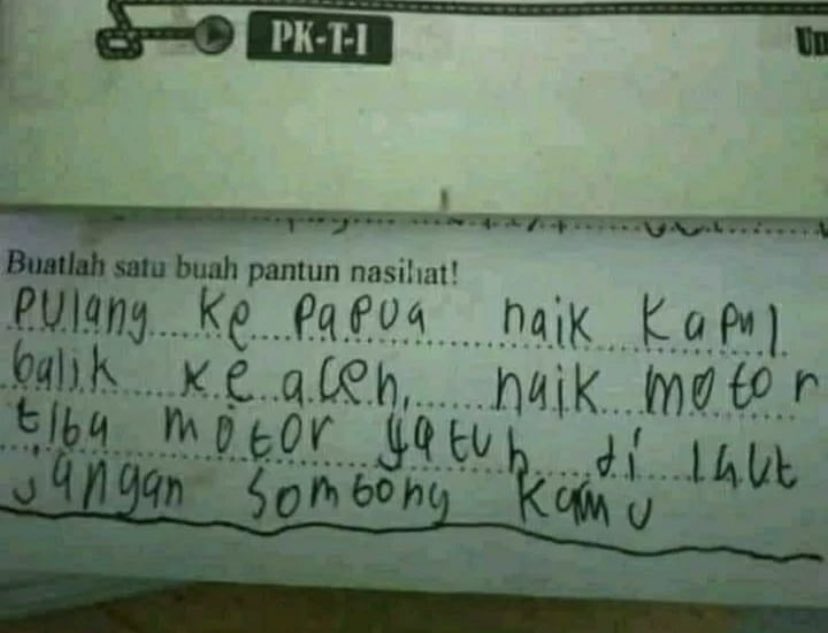 PK-T-1
Un
Buatlah satu buah pantun nasihat!
pulang ke papua naik Kapul
balik ke aceh, naik motor
tiba motor yatuh di laut
jangan sombong kamu